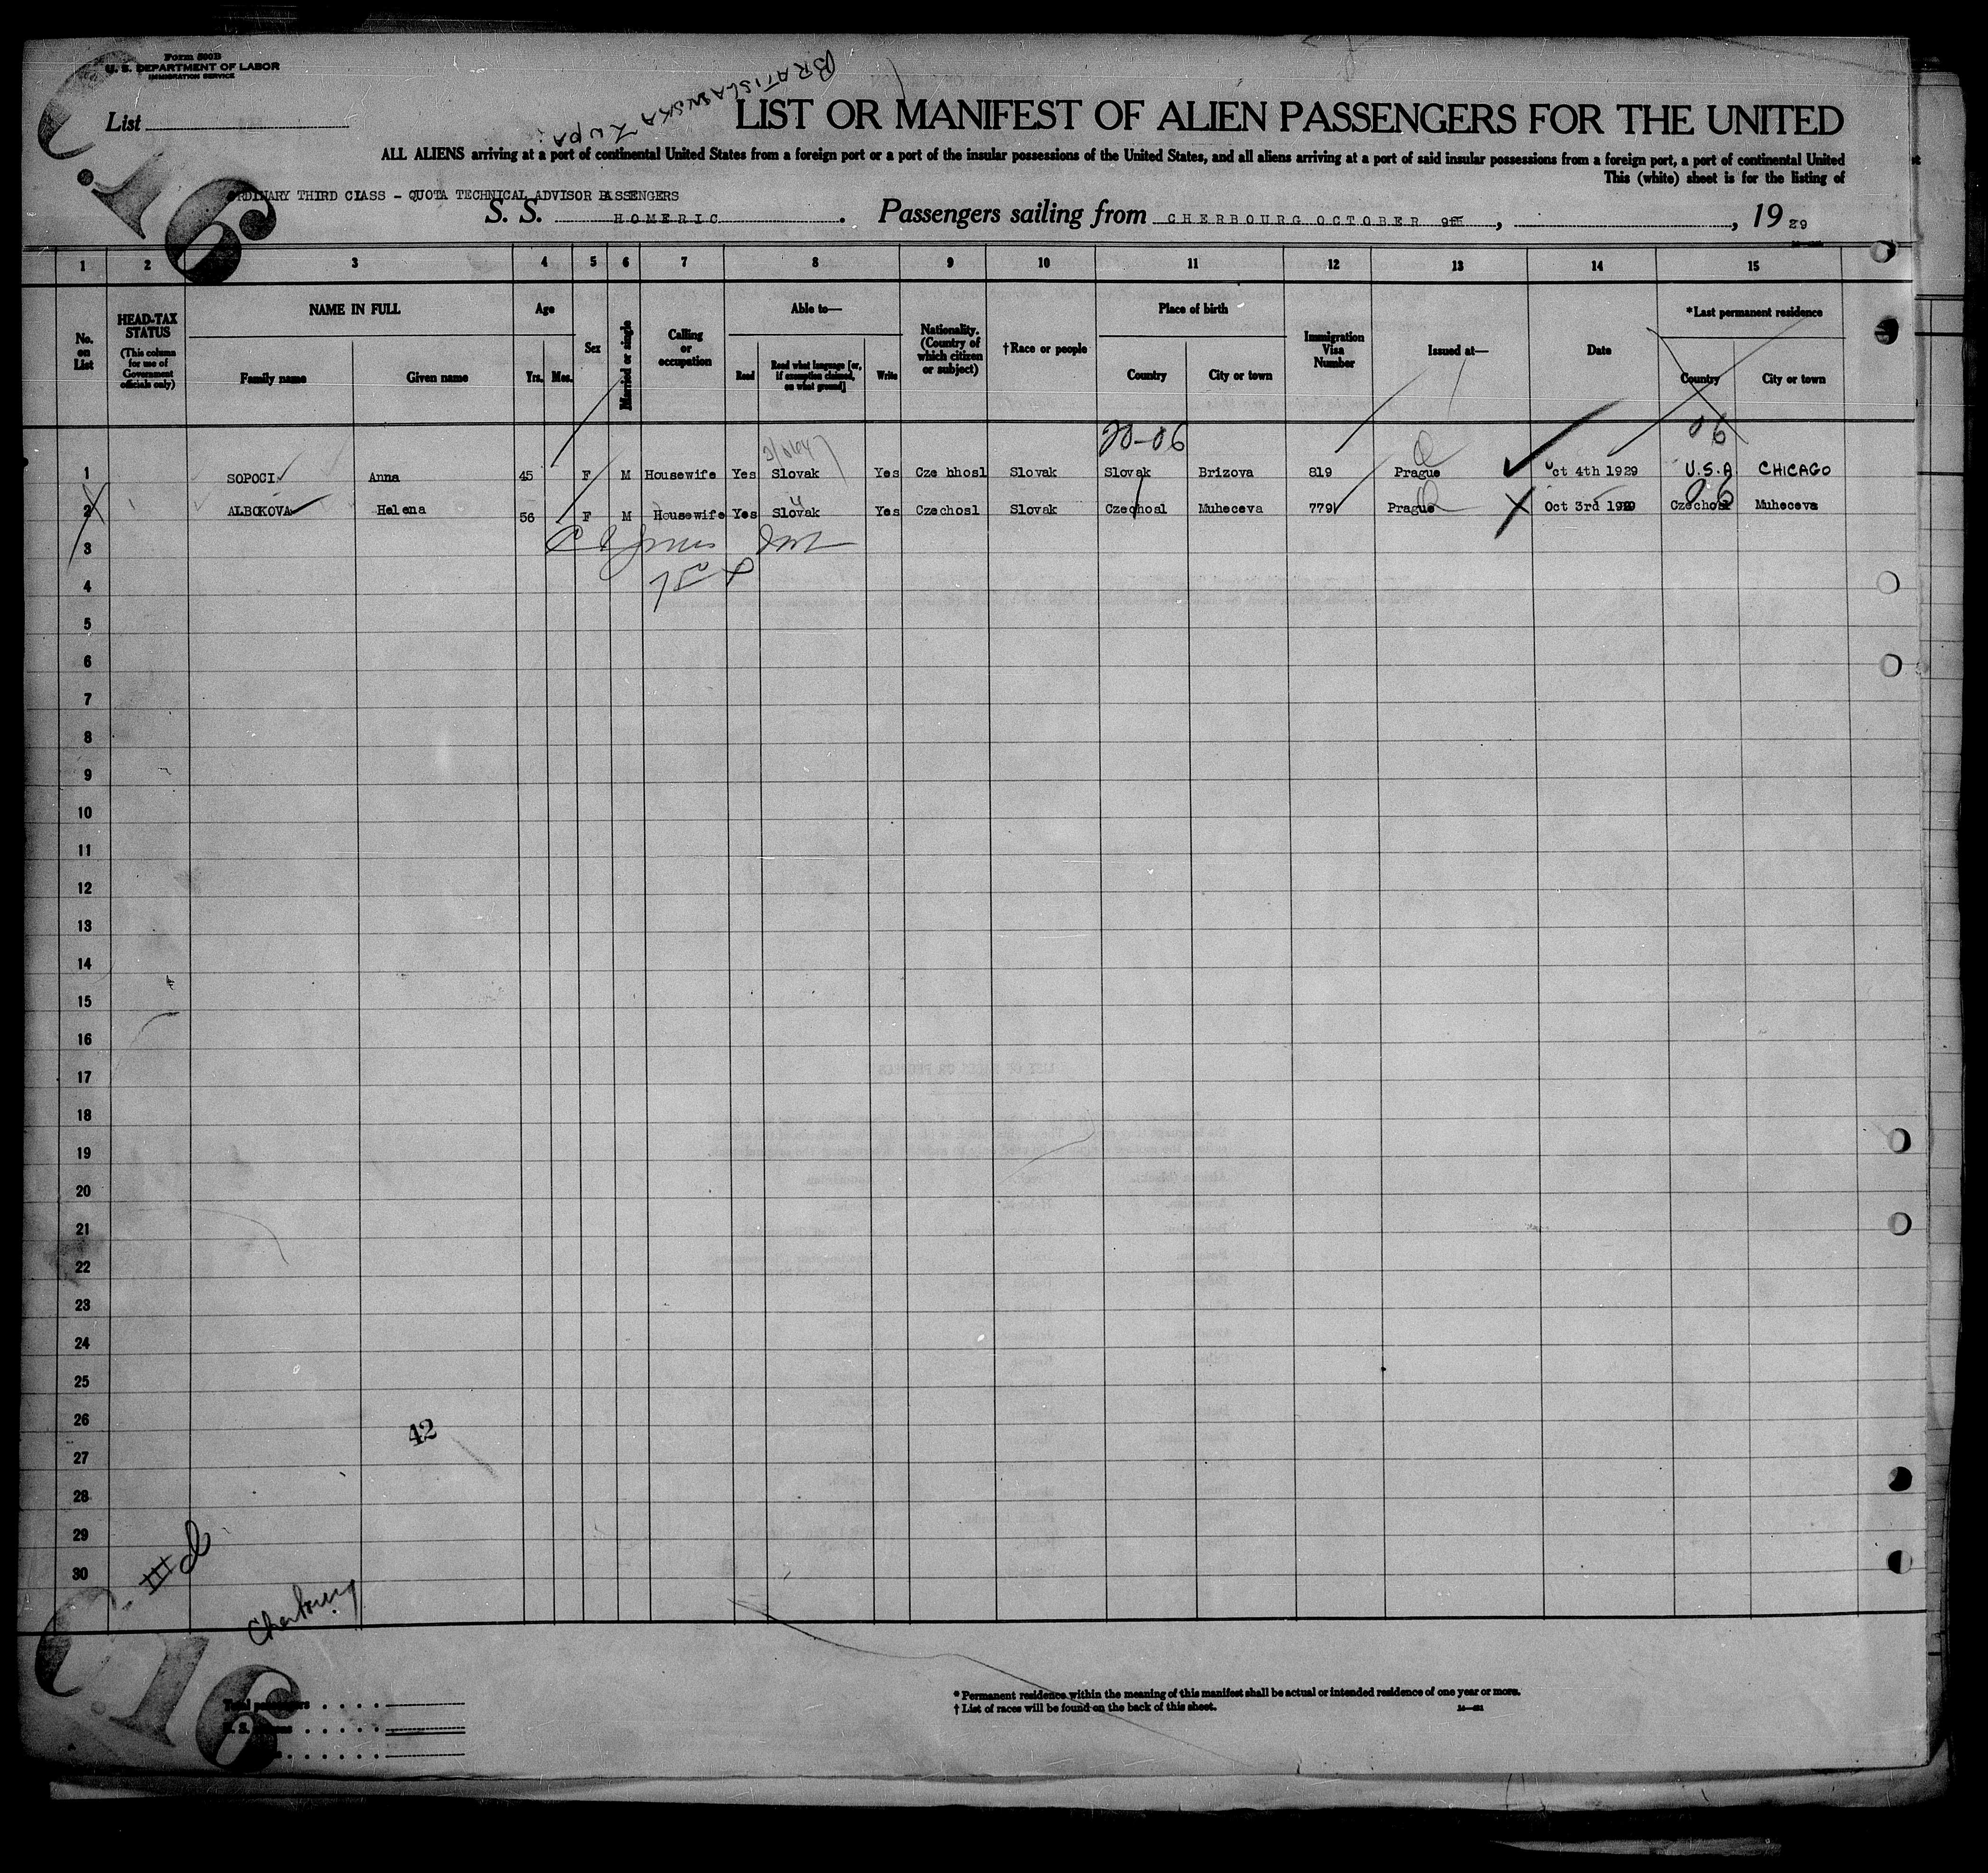 Form 500B
U. S. DEPARTMENT OF LABOR
IMMIGRATION SERVICE
BRATISLAVSKA ZUPA.
List
LIST OR MANIFEST OF ALIEN PASSENGERS FOR THE UNITED
ALL ALIENS arriving at a port of continental United States from a foreign port or a port of the insular possessions of the United States, and all aliens arriving at a port of said insular possessions from a foreign port, a port of continental United
This (white) sheet is for the listing of
ORDINARY THIRD CLASS - QUOTA TECHNICAL ADVISOR PASSENGERS
S. S. HOMERIC. Passengers sailing from CHERBOURG OCTOBER 9th, , 19 29
C.16
1 2 3 4 5 6 7 8 9 10 11 12 13 14 15
No. on List
HEAD-TAX STATUS
(This column for use of Government officials only)
NAME IN FULL
Family name Given name
Age
Yrs. Mos.
Sex
Married or single
Calling or occupation
Able to—
Read
Read what language [or, if exemption claimed, on what ground]
Write
Nationality. (Country of which citizen or subject)
†Race or people
Place of birth
Country City or town
Immigration Visa Number
Issued at—
Date
*Last permanent residence
Country City or town
20-06 06
1 SOPOCI Anna 45 F M Housewife Yes Slovak Yes Cze hhosl Slovak Slovak Brizova 819 Prague Oct 4th 1929 U.S.A CHICAGO
06
2 ALBOKOVA Helena 56 F M Housewife Yes Slovak Yes Czechosl Slovak Czechosl Muheceva 779 Prague Oct 3rd 1929 Czechosl Muheceva
3
4
5
6
7
8
9
10
11
12
13
14
15
16
17
18
19
20
21
22
23
24
25
26
42
27
28
29
30
IIId
Cherbourg
C.16
Total passengers
U. S. citizens
* Permanent residence within the meaning of this manifest shall be actual or intended residence of one year or more.
† List of races will be found on the back of this sheet.